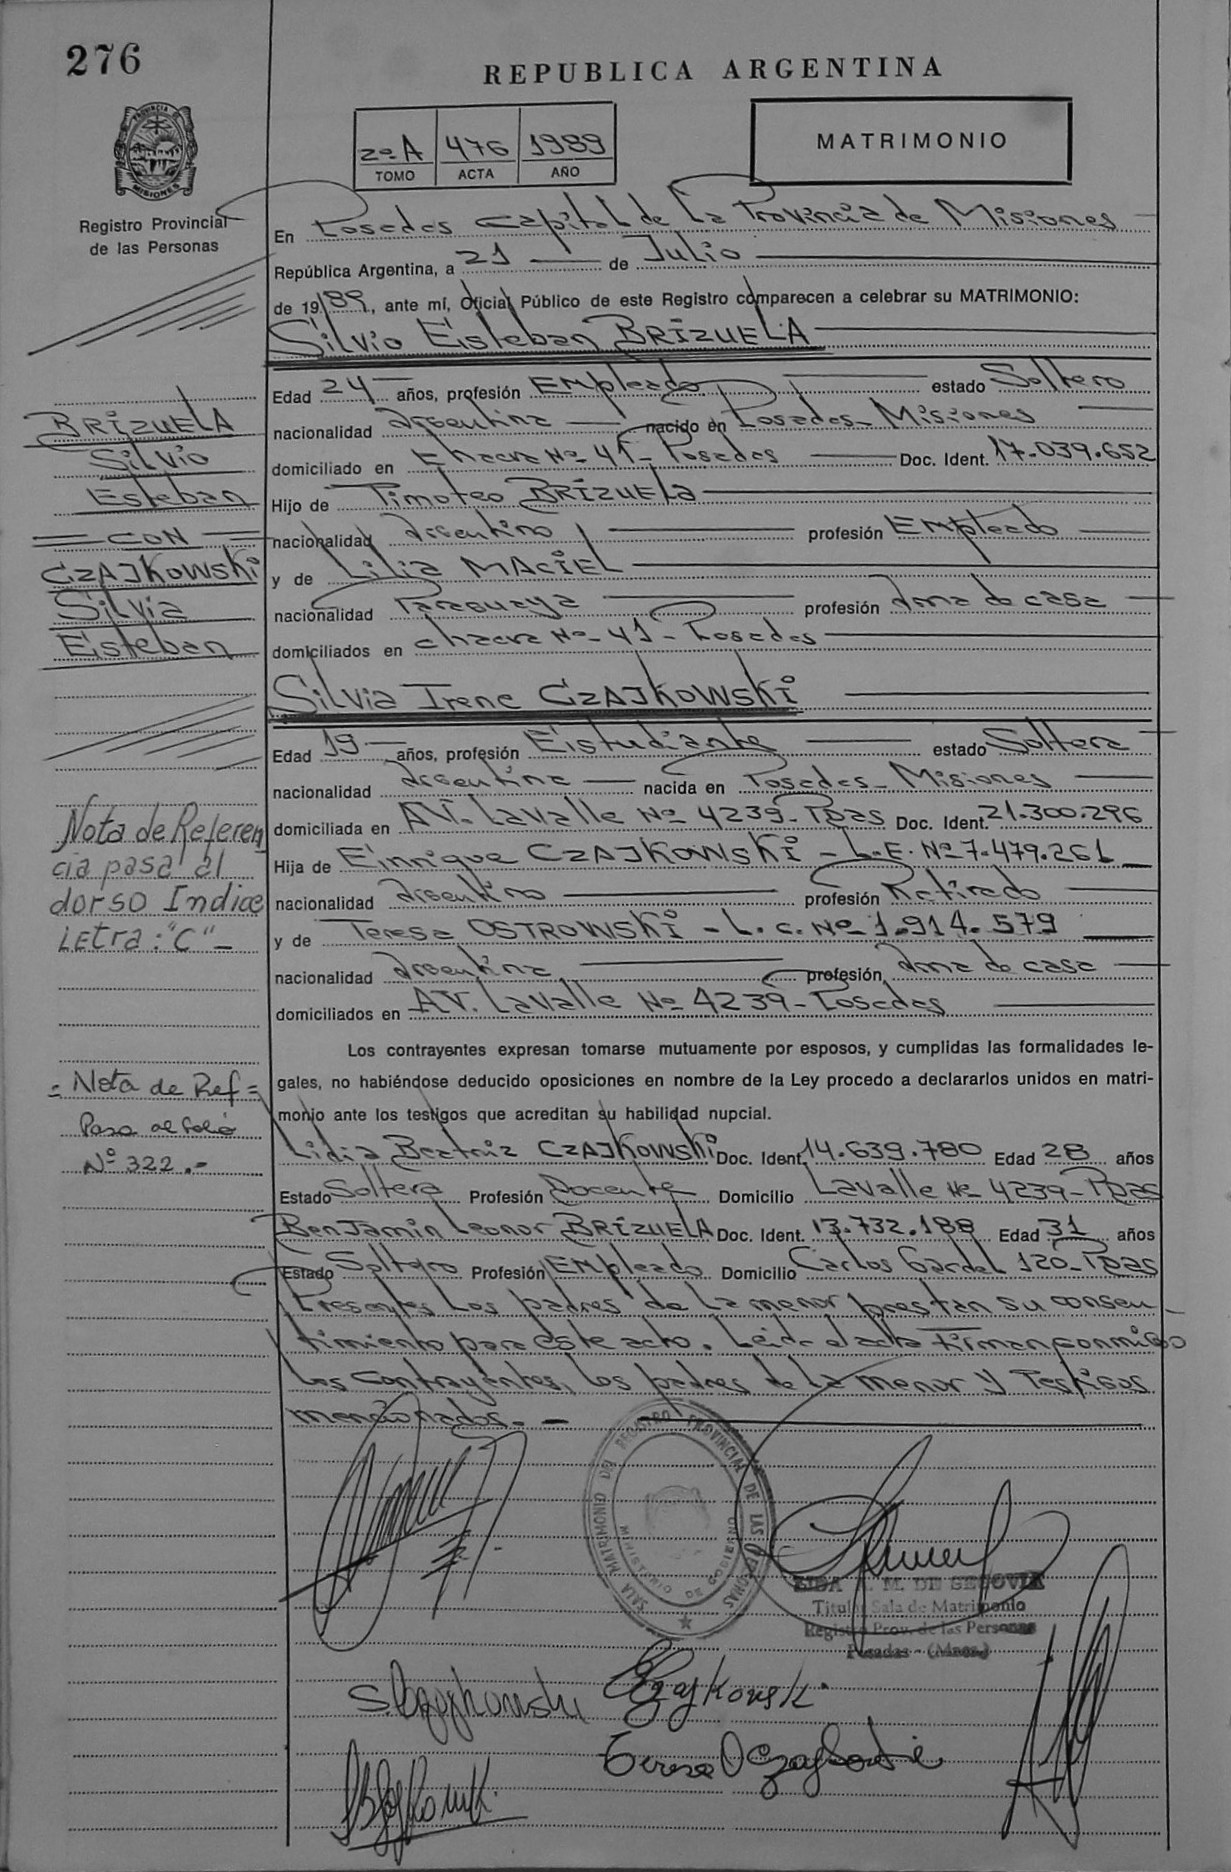 276
REPUBLICA ARGENTINA
PROVINCIA DE
MISIONES
Registro Provincial
de las Personas
2º A 476 1989
TOMO ACTA AÑO
MATRIMONIO
En Posadas Capital de La Provincia de Misiones
República Argentina, a 21 de Julio
de 1989, ante mí, Oficial Público de este Registro comparecen a celebrar su MATRIMONIO:
Silvio Esteban BRIZUELA
Edad 24 años, profesión Empleado estado Soltero
nacionalidad Argentina nacido en Posadas - Misiones
domiciliado en Chacra Nº 41 - Posadas Doc. Ident. 17.039.652
Hijo de Timoteo BRIZUELA
nacionalidad Argentino profesión Empleado
y de Lilia MACIEL
nacionalidad Paraguaya profesión Ama de casa
domiciliados en Chacra Nº 41 - Posadas
Silvia Irene CZAJKOWSKI
Edad 19 años, profesión Estudiante estado Soltera
nacionalidad Argentina nacida en Posadas - Misiones
domiciliada en AV. Lavalle Nº 4239 - Pdas Doc. Ident. 21.300.296
Hija de Enrique CZAJKOWSKI - L.E. Nº 7.479.261
nacionalidad Argentino profesión Retirado
y de Teresa OSTROWSKI - L.C. Nº 1.914.579
nacionalidad Argentina profesión Ama de casa
domiciliados en AV. Lavalle Nº 4239 - Posadas
Los contrayentes expresan tomarse mutuamente por esposos, y cumplidas las formalidades le-
gales, no habiéndose deducido oposiciones en nombre de la Ley procedo a declararlos unidos en matri-
monio ante los testigos que acreditan su habilidad nupcial.
Lidia Beatriz CZAJKOWSKI Doc. Ident. 14.639.780 Edad 28 años
Estado Soltera Profesión Docente Domicilio Lavalle Nº 4239 - Pdas
Benjamin Leonor BRIZUELA Doc. Ident. 13.732.188 Edad 31 años
Estado Soltero Profesión Empleado Domicilio Carlos Gardel 120 - Pdas
Presentes Los padres de La menor prestan su consen-
timiento para este acto. Leida el acta firman conmigo
Los contrayentes, los padres de La menor y Testigos
mencionados.-
BRIZUELA
Silvio
Esteban
CON
CZAJKOWSKI
Silvia
Esteban
Nota de Referen
cia pasa al
dorso Indice
Letra: "C" -
= Nota de Ref =
Pasa al folio
Nº 322.-
SALA MATRIMONIO DEL REGISTRO PROVINCIAL DE LAS PERSONAS
MINISTERIO DE GOBIERNO
M. DE SEGOVIA
Titular Sala de Matrimonio
Registro Prov. de las Personas
Posadas - (Mnes.)
S. Czajkowski
Czajkowski
Teresa O Czajkowski